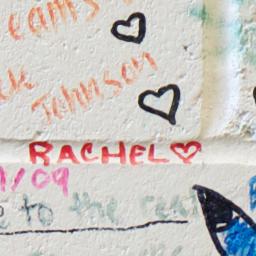 eams
Johnson
RACHEL♡
1/09
e to the real